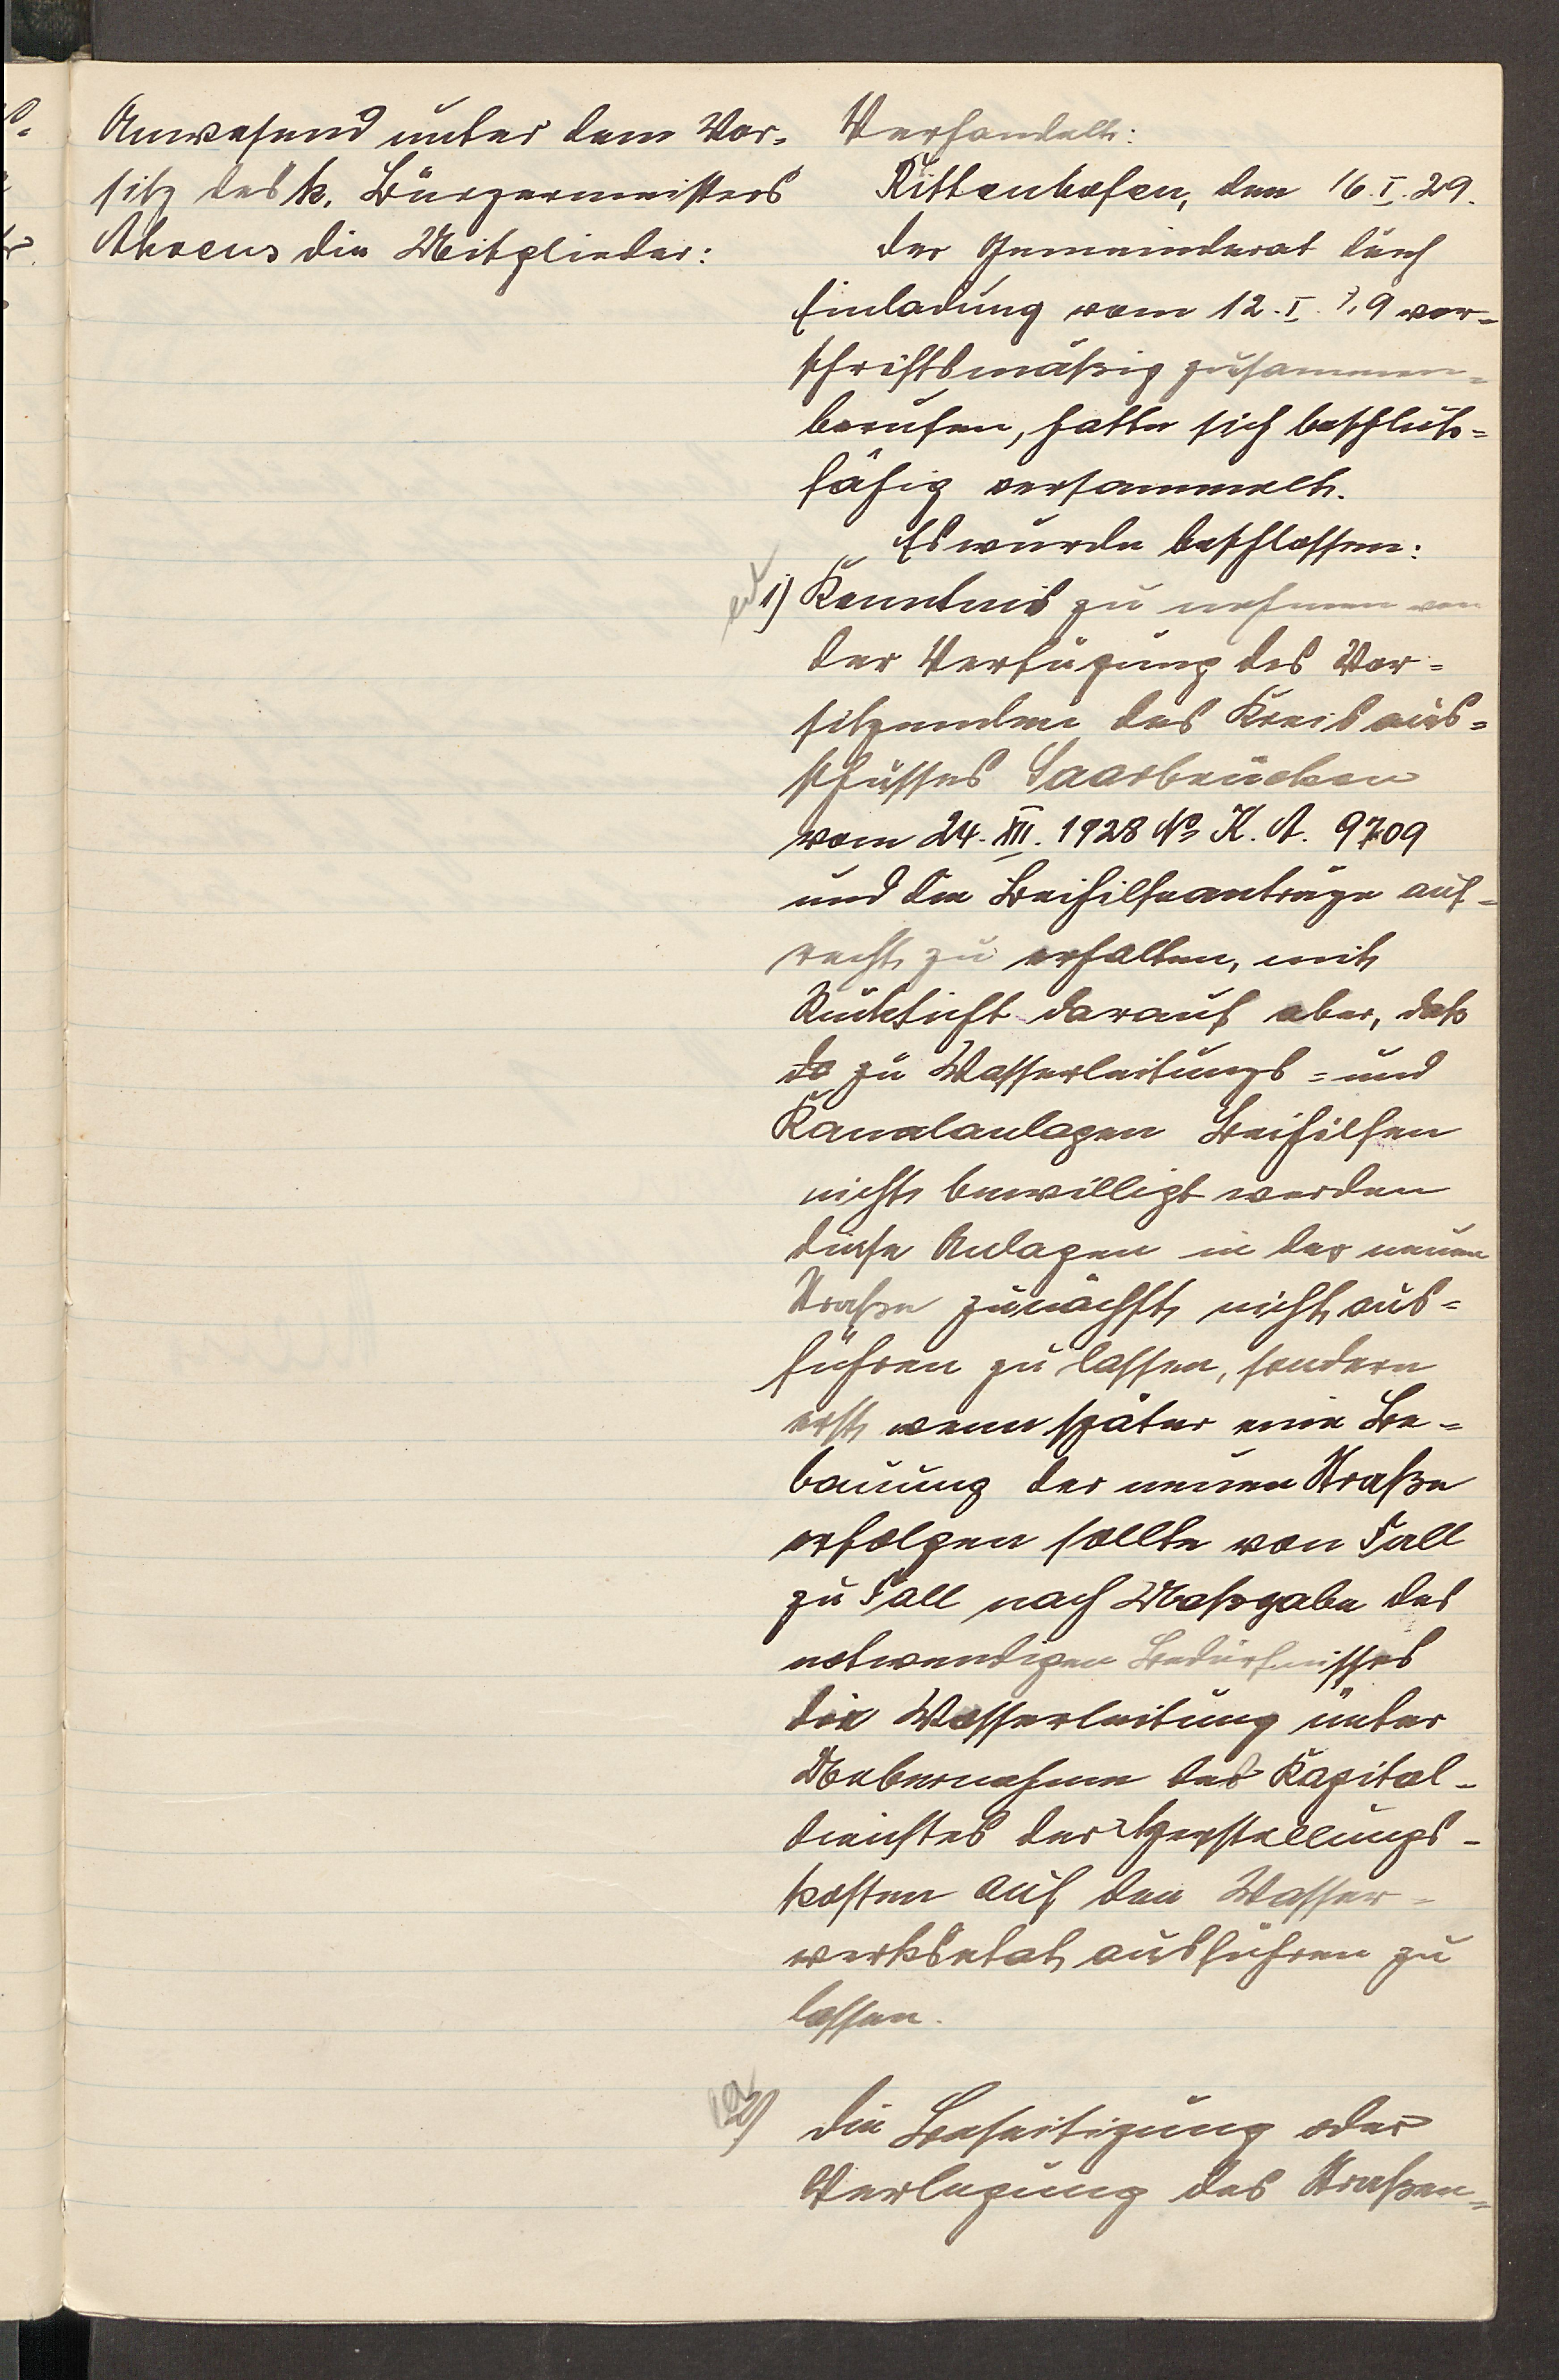 Anwesend unter dem Vor-
sitz des k. Bürgermeisters
Ahrens die Mitglieder:
Verhandelt:
Rittenhofen, den 16.I.29.
Der Gemeinderat durch
Einladung vom 12.I.29 vor-
schriftsmäßig zusammen-
berufen, hatte sich beschluß-
fähig versammelt.
Es wurde beschlossen:
1) Kenntnis zu nehmen von
der Verfügung des Vor-
sitzenden des Kreisaus-
schusses Saarbrücken
vom 24.XII.1928 No K.A. 9709
und die Beihilfeanträge auf-
recht zu erhalten, mit
Rücksicht darauf aber, daß
zu Wasserleitungs- und
Kanalanlagen Beihilfen
nicht bewilligt werden
diese Anlagen in der neuen
Straße zunächst nicht aus-
führen zu lassen, sondern
erst wenn später eine Be-
bauung der neuen Straße
erfolgen sollte von Fall
zu Fall nach Maßgabe des
notwendigen Bedürfnisses
die Wasserleitung unter
Uebernahme des Kapital-
dienstes der Herstellungs-
kosten auf den Wasser-
werksetat ausführen zu
lassen.
2) Die Beseitigung oder
Verlegung des Straßen-